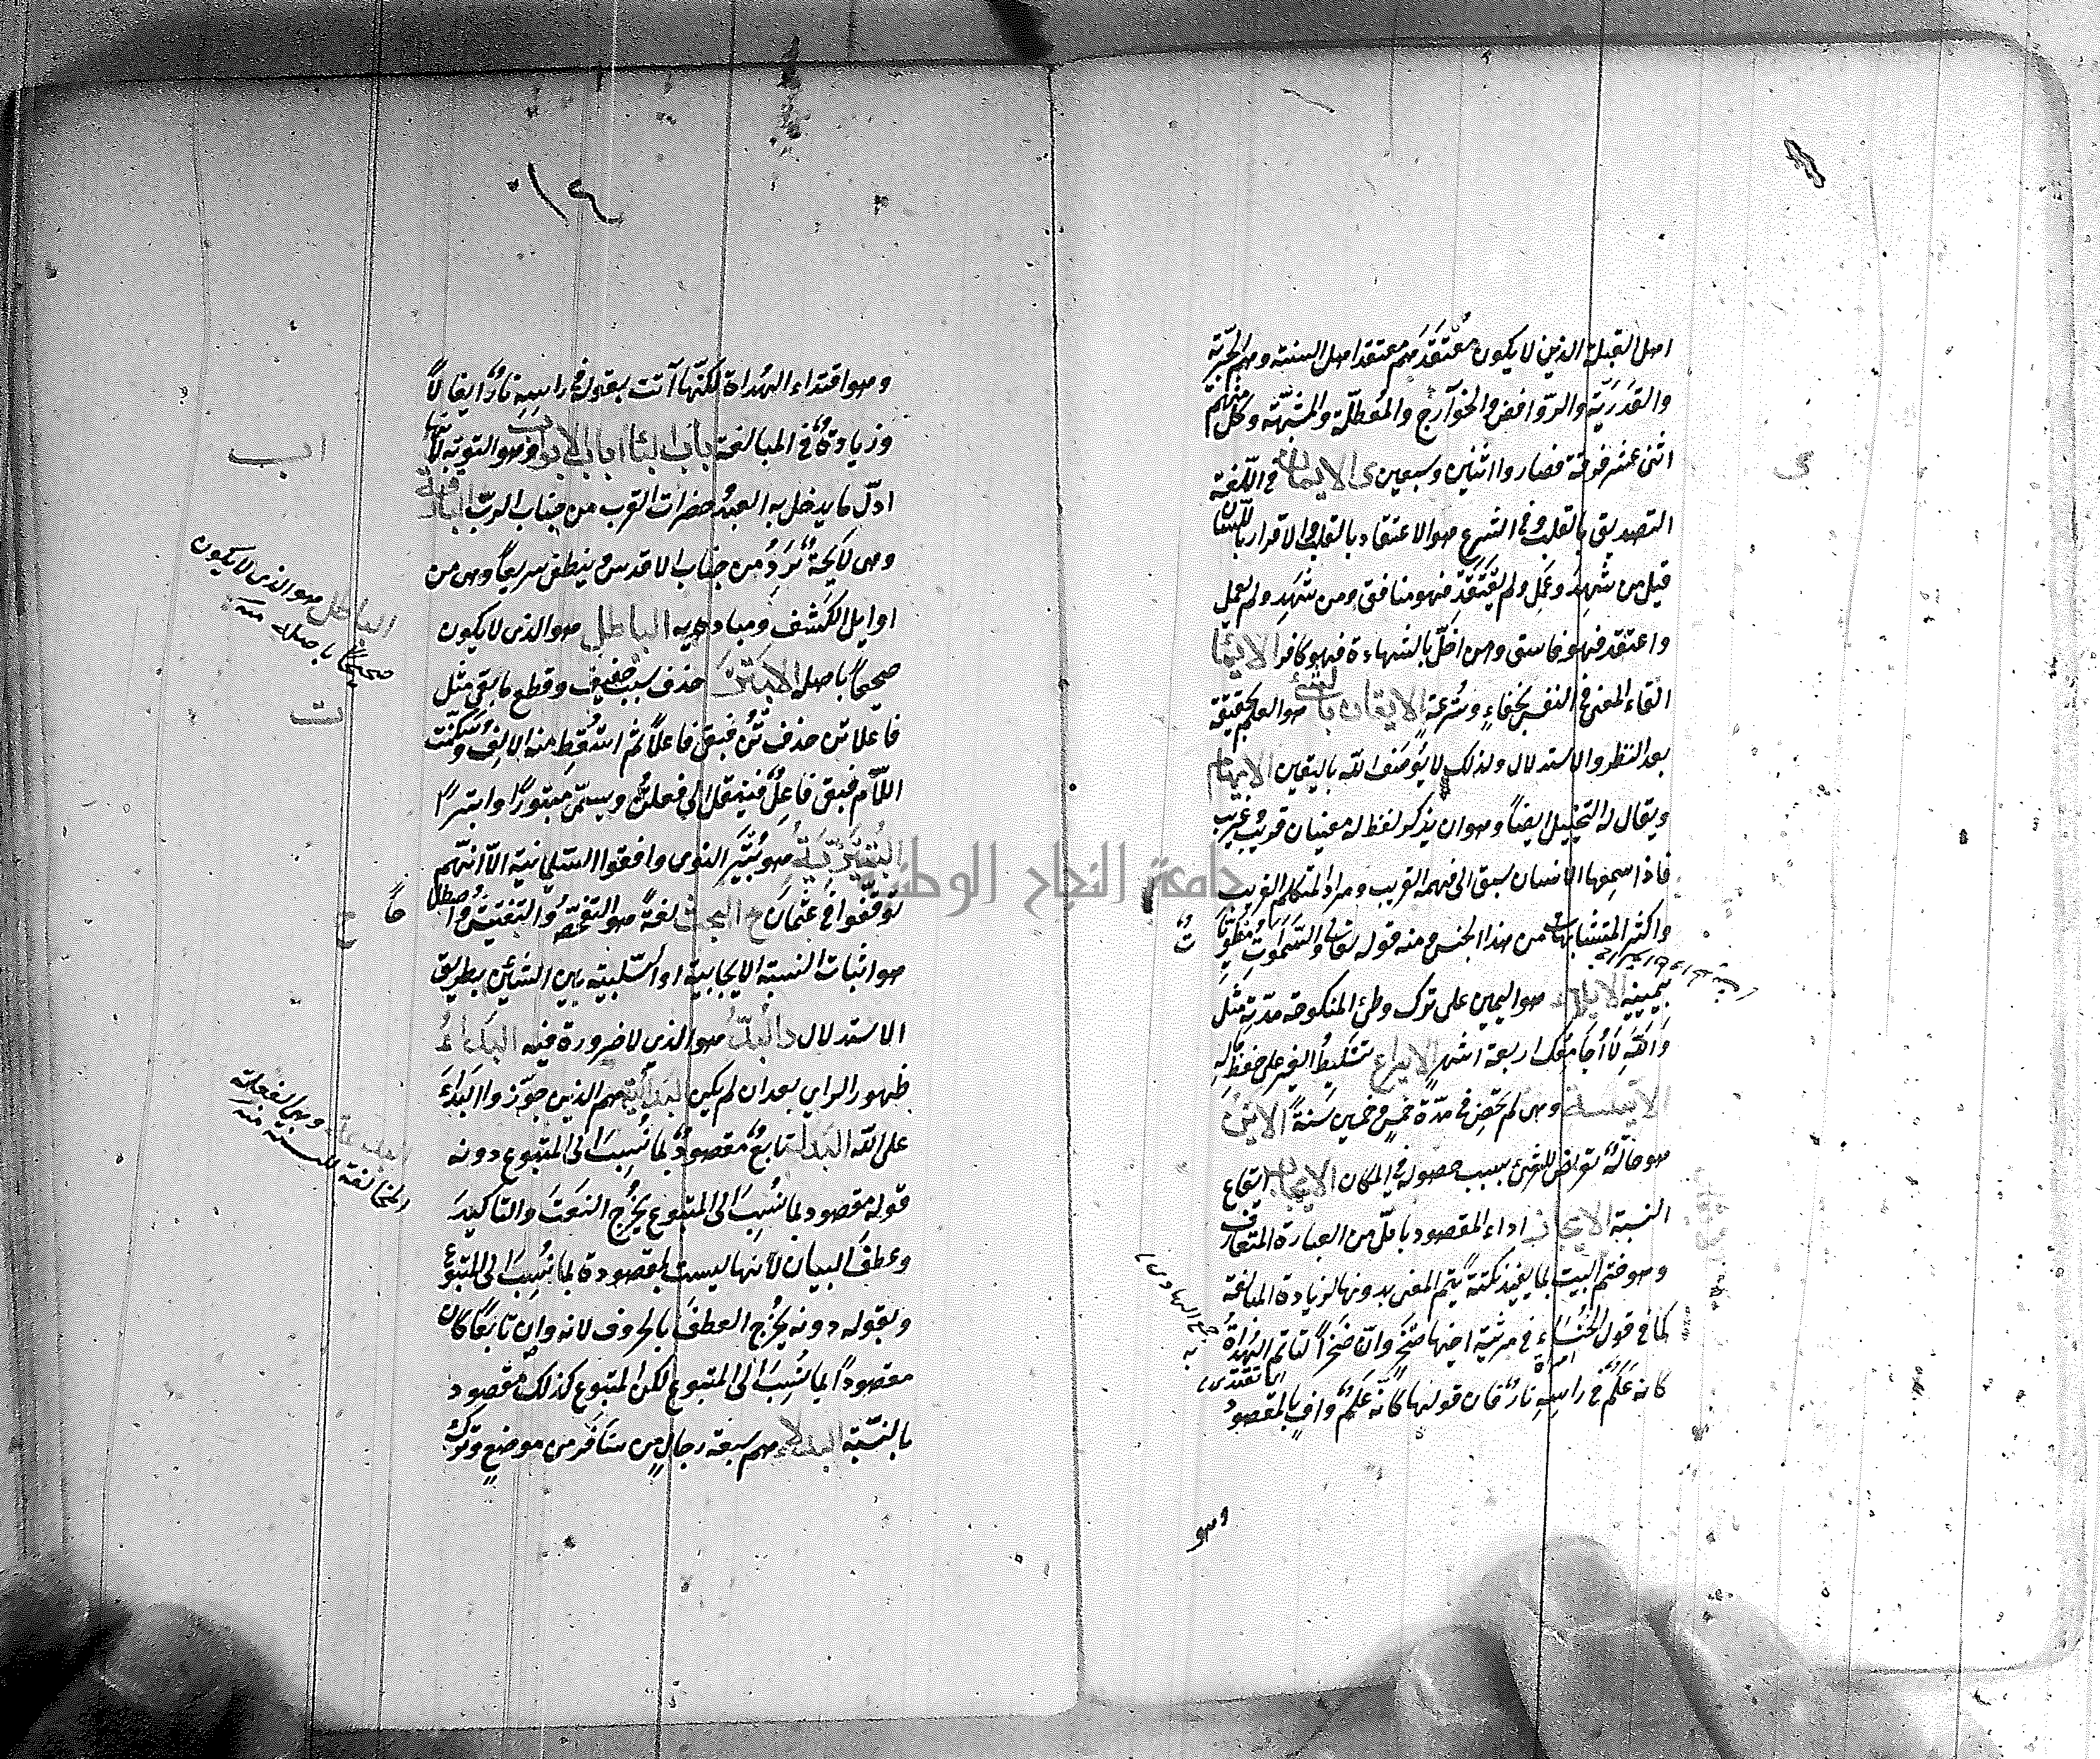 اهل القبلة الذين لا يكون معتقدهم معتقد اهل السنة وهم الجبرية
والقدرية والروافض والخوارج والمعطلة والمشبهة وكل منهم
اثنى عشر فرقة فصاروا اثنين وسبعين ى الايمان فى اللغة
التصديق بالقلب وفى الشرع هو الاعتقاد بالقلب والاقرار باللسان
قيل من شهد وعمل ولم يعتقد فهو منافق ومن شهد ولم يعمل
واعتقد فهو فاسق ومن اخل بالشهادة فهو كافر الايماء
القاء المعنى فى النفس بخفاء وسرعة الايقان بالشئ هو العلم بحقيقته
بعد النظر والاستدلال ولذلك لا يوصف الله باليقين الايهام
ويقال له التخييل ايضاً وهو ان يذكر لفظ له معنيان قريب وغريب
فاذا سمعها الانسان سبق الى فهمه القريب ومراد المتكلم الغريب
واكثر المتشابهات من هذا الجنس ومنه قوله تعالى والسموت مطويات
بيمينه الايلاء هو اليمين على ترك وطئ المنكوحة مدته مثل
والله لا اجامعك اربعة اشهر الايداع تسليط الغير على حفظ ماله
الآيسة وهى لم تحض فى مدة خمس وخمسين سنة الاين
هو حالة تعرض للشئ بسبب حصوله فى المكان الايجاب ايقاع
النسبة الايجاز اداء المقصود باقل من العبارة المتعارف
وهو ختم البيت بما يفيد نكتة يتم المعنى بدونها لزيادة المبالغة
كما فى قول الخنساء فى مرثية اخيها صخر وان صخراً لتاتم الهداة به
كانه علم فى راسه نار فان قولها كانه علم واف بالمقصود
وهو
١٤
وهو اقتداء الهداة لكنها آتت بقولها فى راسه نار ايغالاً
وزيادة فى المبالغة باب الباء اب باب الابواب هو التوبة لانها
اول ما يدخل به العبد حضرات القرب من جناب الرب البارقة
وهى لايحة ترد من جناب الاقدس وينطفى سريعاً وهى من
اوايل الكشف ومباديه الباطل هو الذى لا يكون
صحيحاً باصله الابتر حذف سبب خفيف وقطع ما بقى مثل
فاعلاتن حذف تن فبقى فاعلا ثم اسقط منه الالف وسكنت
اللام فبقى فاعل فينقل الى فعلن ويسمى مبتوراً وابتراً
البتيرية هو بتير النومى وافقوا السليمانية الا انهم
توقفوا فى عثمان ح البحث لغة هو التفحص والتفتيش واصطلاحاً
هو اثبات النسبة الايجابية او السلبية بين الشيئين بطريق
الاستدلال د البد هو الذي لا ضرورة فيه البداء
ظهور الراي بعد ان لم يكن البدائية هم الذين جوزوا البداء
على الله البدل تابع مقصود بما نسب الى المتبوع دونه
قوله مقصود بما نسب الى المتبوع يخرج النعت والتاكيد
وعطف البيان لانها ليست بمقصودة بما نسب الى المتبوع
وبقوله دونه يخرج العطف بالحروف لانه وان كان تابعاً
مقصوداً بما نسب الى المتبوع لكن المتبوع كذلك مقصود
بالنسبة البدلاء هم سبعة رجال من سافر من موضع وترك
اب
الباطل هو الذى لا يكون
صحيحاً باصله منه
ت
ح
البدعة وهى الفعلة
المخالفة للسنة منه